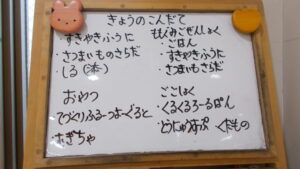 きょうのこんだて
すきやきふうに
・さつまいもさらだ
しる(添)
おやつ
てづくりふるーつよーぐると
・むぎちゃ
もぐもぐごぜんしょく
・ごはん
・すきやきふうに
・さつまいもさらだ
ここしょく
・くるくるろーるぱん
・とうにゅうすーぷ くだもの